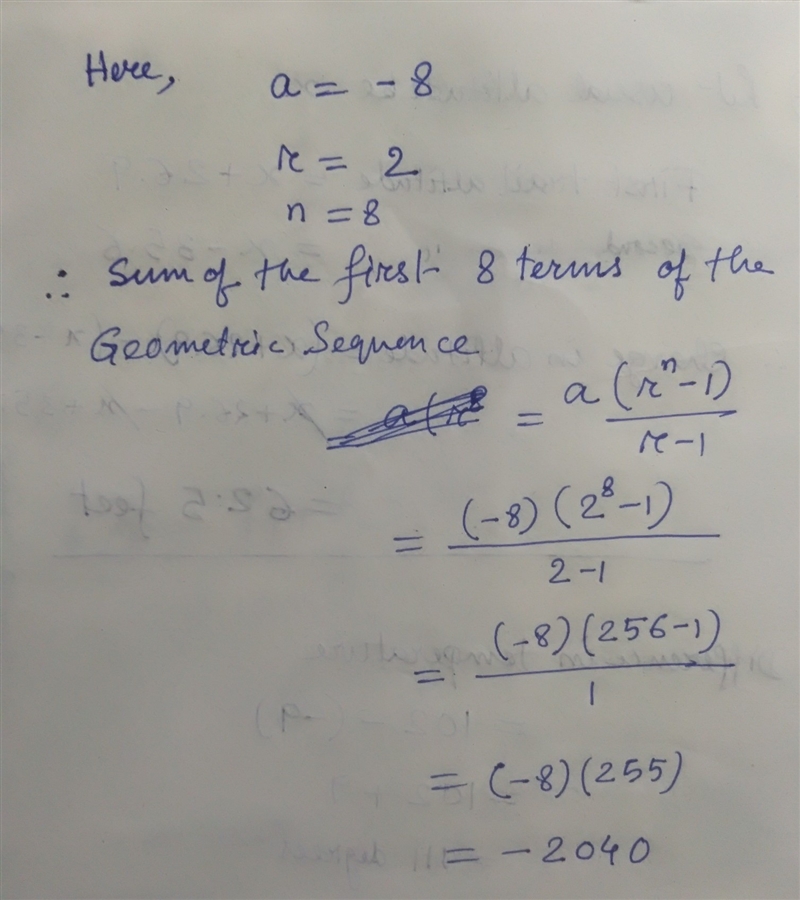 Here, a = - 8
r = 2
n = 8
∴ Sum of the first 8 terms of the
Geometric Sequence
= a (rⁿ-1) / r-1
= (-8) (2⁸-1) / 2-1
= (-8)(256-1) / 1
= (-8)(255)
= - 2040